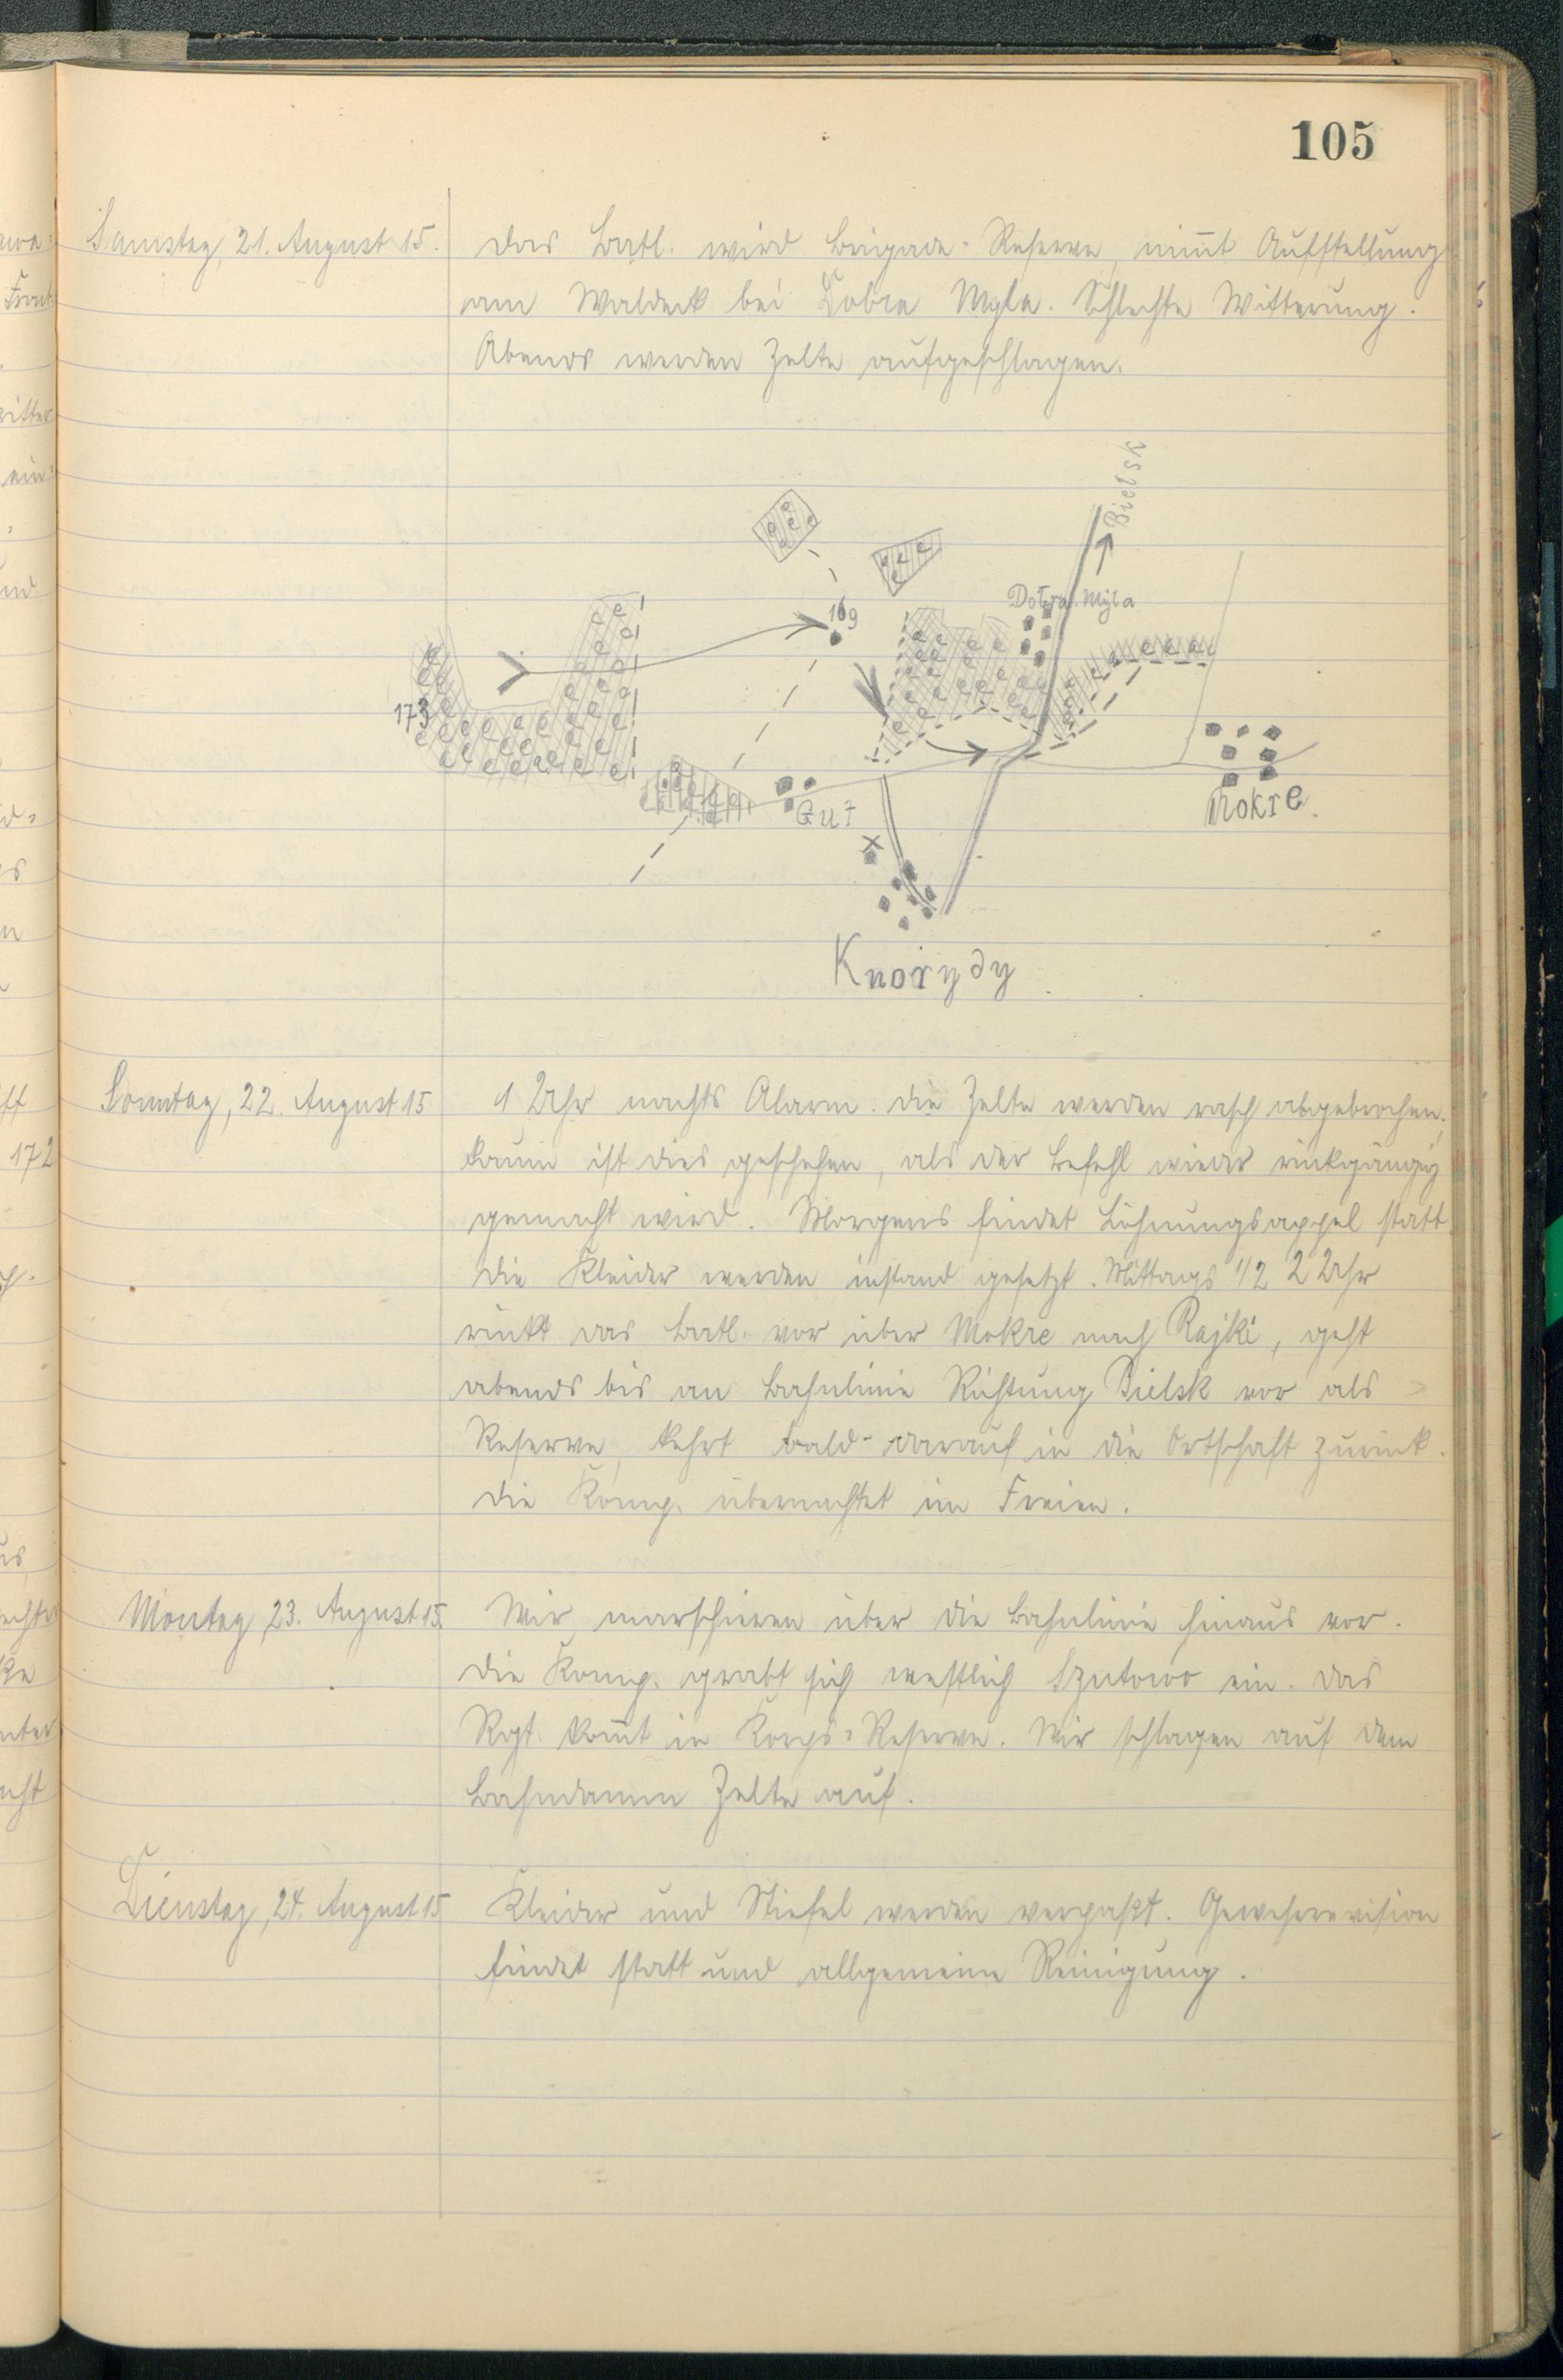 105
Samstag, 21. August 15.
Das Batl. wird Brigade-Reserve, nim̅t Aufstellung
am Waldeck bei Dobra Myla. Schlechte Witterung.
Abends werden Zelte aufgeschlagen.
Bielsk
169
Dobra Myla
173
Gut
Mokre
Knorydy
Sonntag, 22. August 15
1 Uhr nachts Alarm. Die Zelte werden rasch abgebrochen.
Kaum ist dies geschehen, als der Befehl wieder rückgängig
gemacht wird. Morgens findet Löhnungsappel statt
Die Kleider werden instand gesetzt. Mittags 1/2 2 Uhr
rückt das Batl. vor über Mokre nach Rajki, geht
abends bis an Bahnlinie Richtung Bielsk vor als
Reserve, kehrt bald darauf in die Ortschaft zurück.
Die Komp. übernachtet im Freien.
Montag, 23. August 15.
Wir marschieren über die Bahnlinie hinaus vor.
Die Komp. grabt sich westlich Szutowo ein. Das
Rgt. kom̅t in Korps-Reserve. Wir schlagen auf dem
Bahndamm Zelte auf.
Dienstag, 24. August 15
Kleider und Stiefel werden verpaßt. Gewehrrevision
findet statt und allgemeine Reinigung.